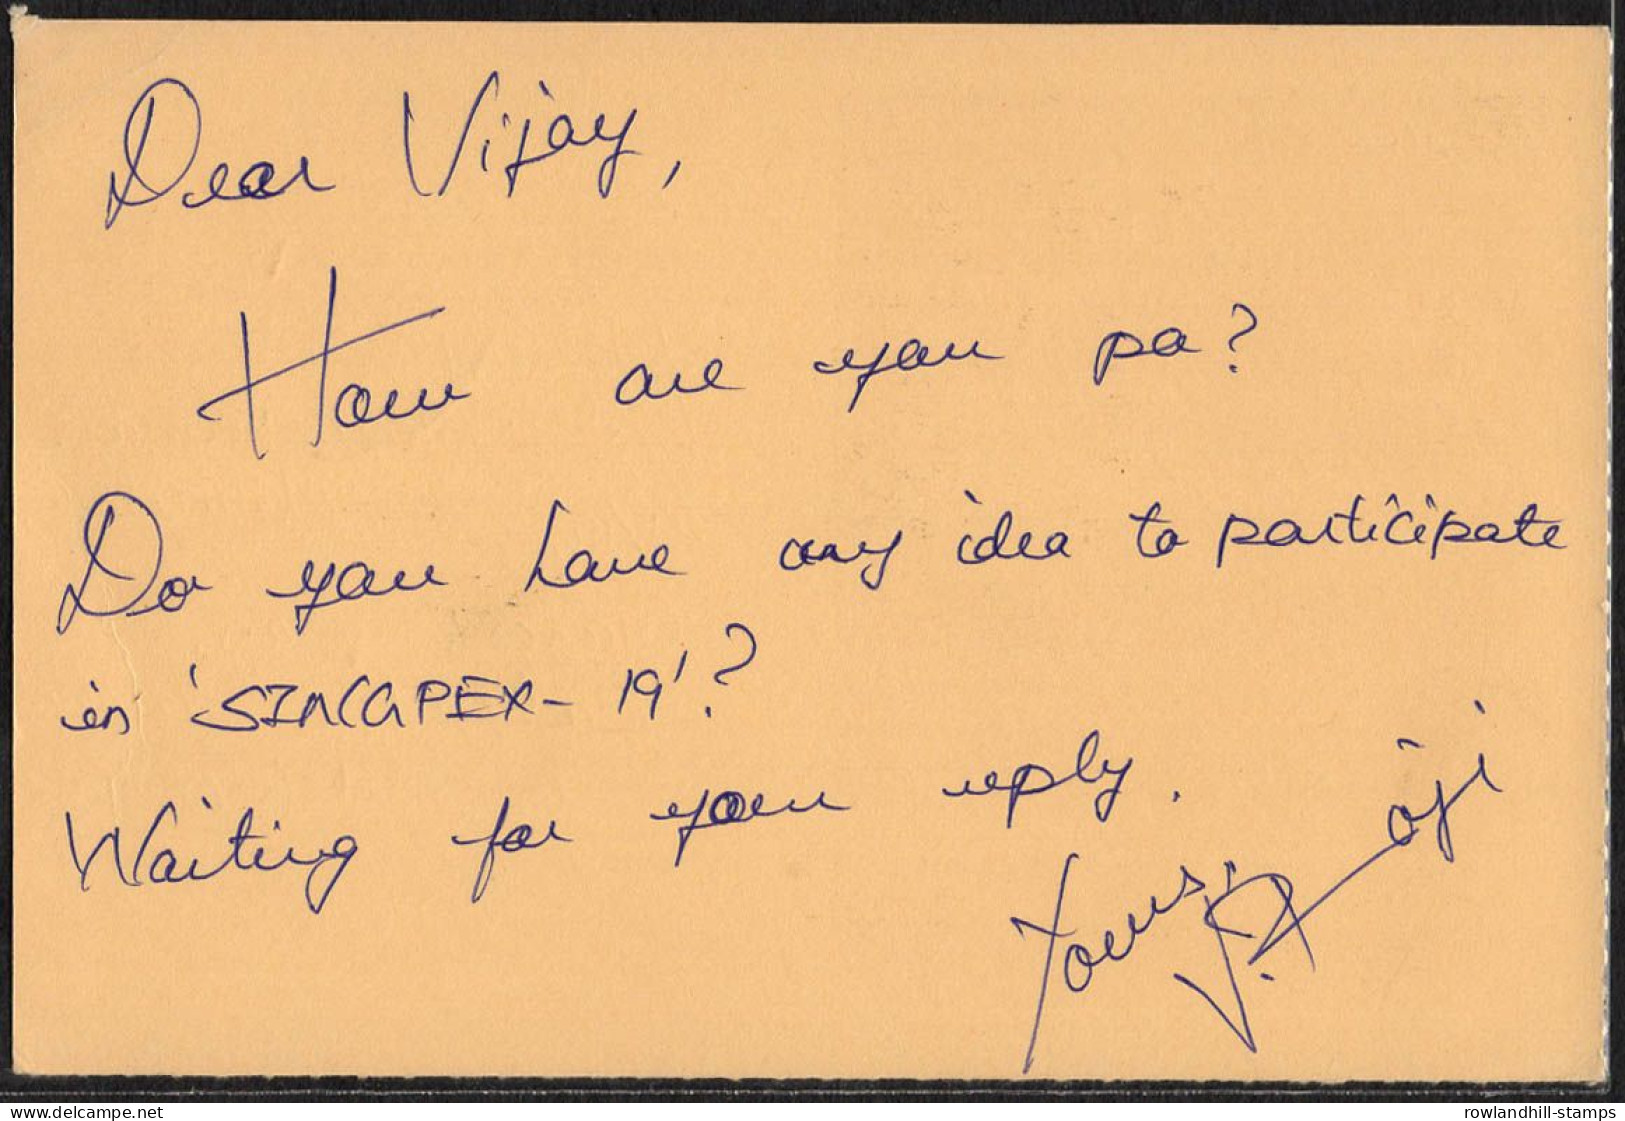 Dear Vijay,
How are you pa?
Do you have any idea to participate
in 'SINGAPEX - 19'?
Waiting for your reply.
Yours,
the-marketeer.delcampe.net
rowlandhill-stamps